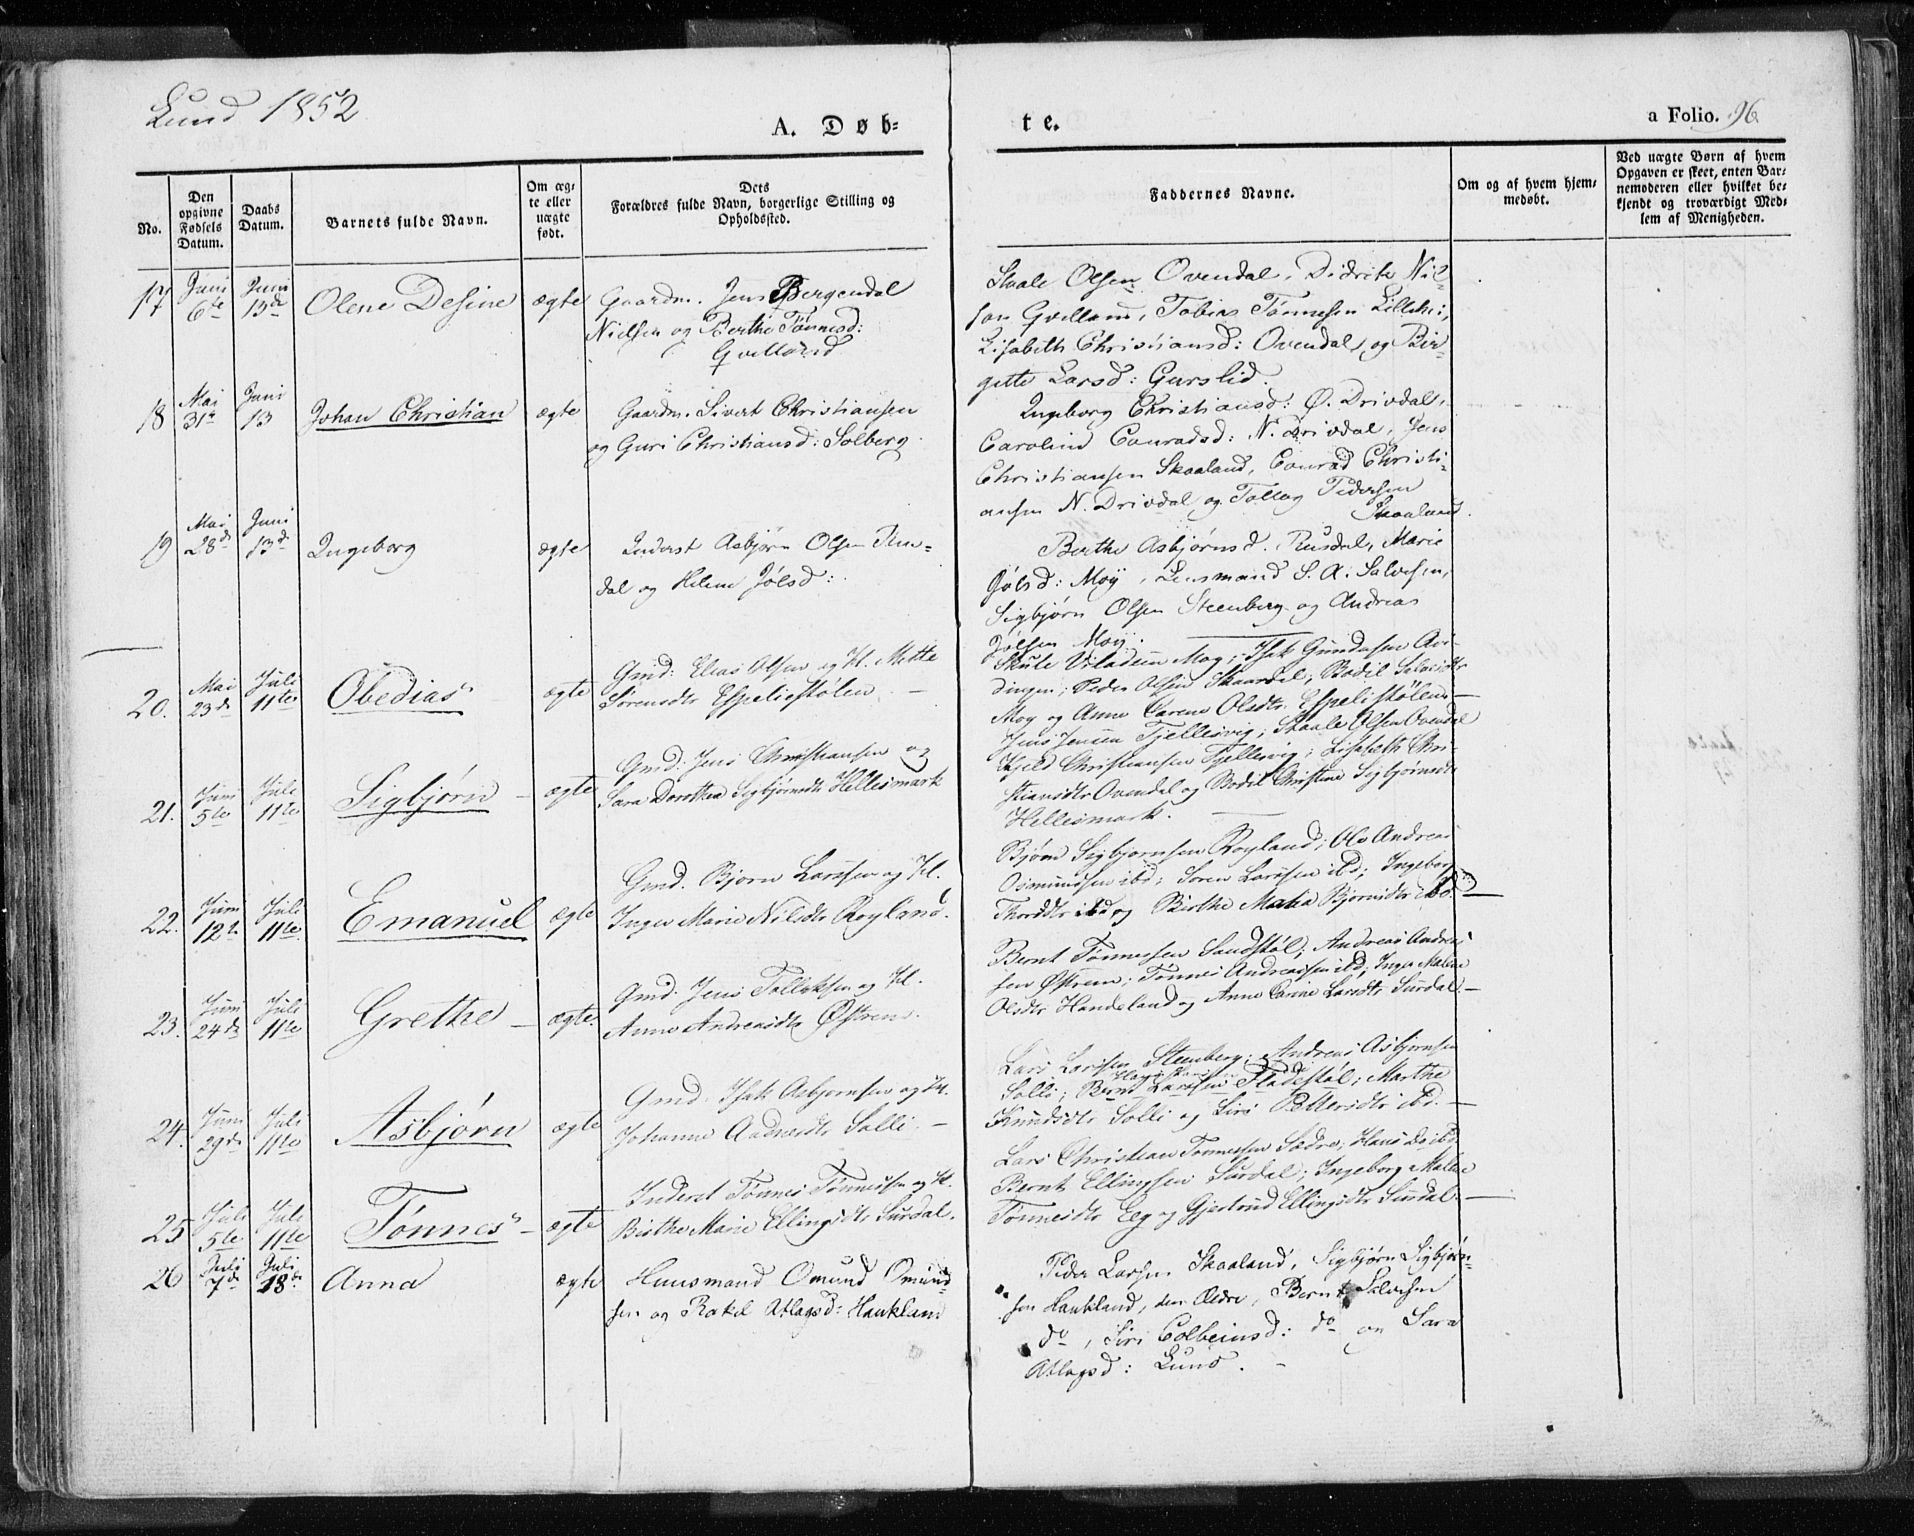 Lund 1852
A. Døb=
te.
a Folio. 96
No.
Den opgivne Fødsels Datum.
Daabs Datum.
Barnets fulde Navn.
Om ægte eller uægte født.
Dets
Forældres fulde Navn, borgerlige Stilling og
Opholdssted.
Faddernes Navne.
Om og af hvem hjem=
medøbt.
Ved uægte Børn af hvem
Opgaven er skeet, enten Bar=
nemoderen eller hvilket be=
kjendt og troværdigt Med=
lem af Menigheden.
17 Juni 6te Juni 13de Olene Desine ægte
Gaardm. Jens Bergendal
Nielsen og Berthe Tønnesd:
Qvelland
Skale Olsen Ovendal, Didrik Niel=
sen Qvelland, Tobias Tønnesen
Lisabeth Christiansd: Ovendal og Bir=
gitte Larsd: Gurslid.
18 Mai 31te Juni 13 Johan Christian ægte
Gaardm. Sivert Christiansen
og Guri Christiansd: Solberg.
Ingeborg Christiansd: Ø. Drivdal,
Caroline Conradsd: N. Drivdal, Jens
Christiansen Skaaland, Conrad Christi=
ansen N. Drivdal og Tollag Pedersen
Skaaland.
19 Mai 28de Juni 13de Ingeborg ægte
Inderst Asbjørn Olsen
dal og Helene Jølsd:
Berthe Asbjørnsd. Rusdal, Marie
Jølsd: Moÿ, Lensmand S. A. Salvesen,
Sigbjørn Olsen Steenberg og Andreas
Jølsen Moÿ.
20. Mai 23de Juli 11te Obedias ægte
Gmd: Elias Olsen og H. Mette
Sørensdtr Espeliestølen. —
Skule Moy; Isak Gundersen
dingen; Peder Olsen Skaardal; Bodil Salvisdtr
Moy og Anne Carene Olsdtr Espelistølen —
21. Juni 5te Juli 11te Sigbjørn — ægte
Gmd: Jens Christiansen og
Sara Dorthea Sigbjørnsdtr Hellesmark
Jens Jensen Fjellesvig; Skaale Olsen Ovendal
Kjeld Christiansen Fjellesvig; Lisabeth Chri=
stiansdtr Ovendal og Bodil Christine Sigbjørnsdtr
Hellesmark.
22. Juni 12te Juli 11te Emanuel ægte
Gmd. Bjørn Larssen og H.
Inger Marie Nilsdtr Røyland.
Bjørn Sigbjørnsen Røyland; Ole Andreas
Osmundsen ibd; Søren Larssen ibd; Ingeborg
Thordsdtr ibd og Birthe Malia Bjørnsdtr ibd. —
23. Juni 24de Juli 11te Grethe — ægte.
Gmd. Jens Tollaksen og H.
Anne Andreasdtr Østrem.
Bernt Tønnessen Sandstøl; Andreas Andreas
sen Østrem; Tønnes Andreassen ibd; Inger Malene
Olsdtr Handeland og Anne Carine Larsdtr Surdal. —
24. Juni 29de Juli 11te Asbjørn ægte
Gmd. Isak Asbjørnsen og H.
Johanne Aadnesdtr Solli. —
Lars Larssen Steenberg; Andreas Asbjørnsen
Solli; Bernt Larssen Fladestøl; Marthe
Knudsdtr Solli og Siri Pettersdtr ibd. —
25 Juli 5te Juli 11te Tønnes — ægte
Inderst Tønnes Tønnessen og H.
Birthe Marie Ellingsdtr Surdal.
Lars Christian Tønnessen Sædre; Hans do ibd.
Bernt Ellingsen Surdal; Ingeborg Malene
Tønnesdtr Eeg og Gjertrud Ellingsdtr Surdal. —
26 Juli 7de Juli 18de Anna ægte
Huusmand Omund Omund=
sen og Rakel Atlagsd: Haukland
Peder Larsen Skaaland, Sigbjørn Sigbjørn=
sen Haukland, den Ældre, Bernt Salvesen
do, Siri Colbeinsd: do og Sara
Atlagsd: Lund. —